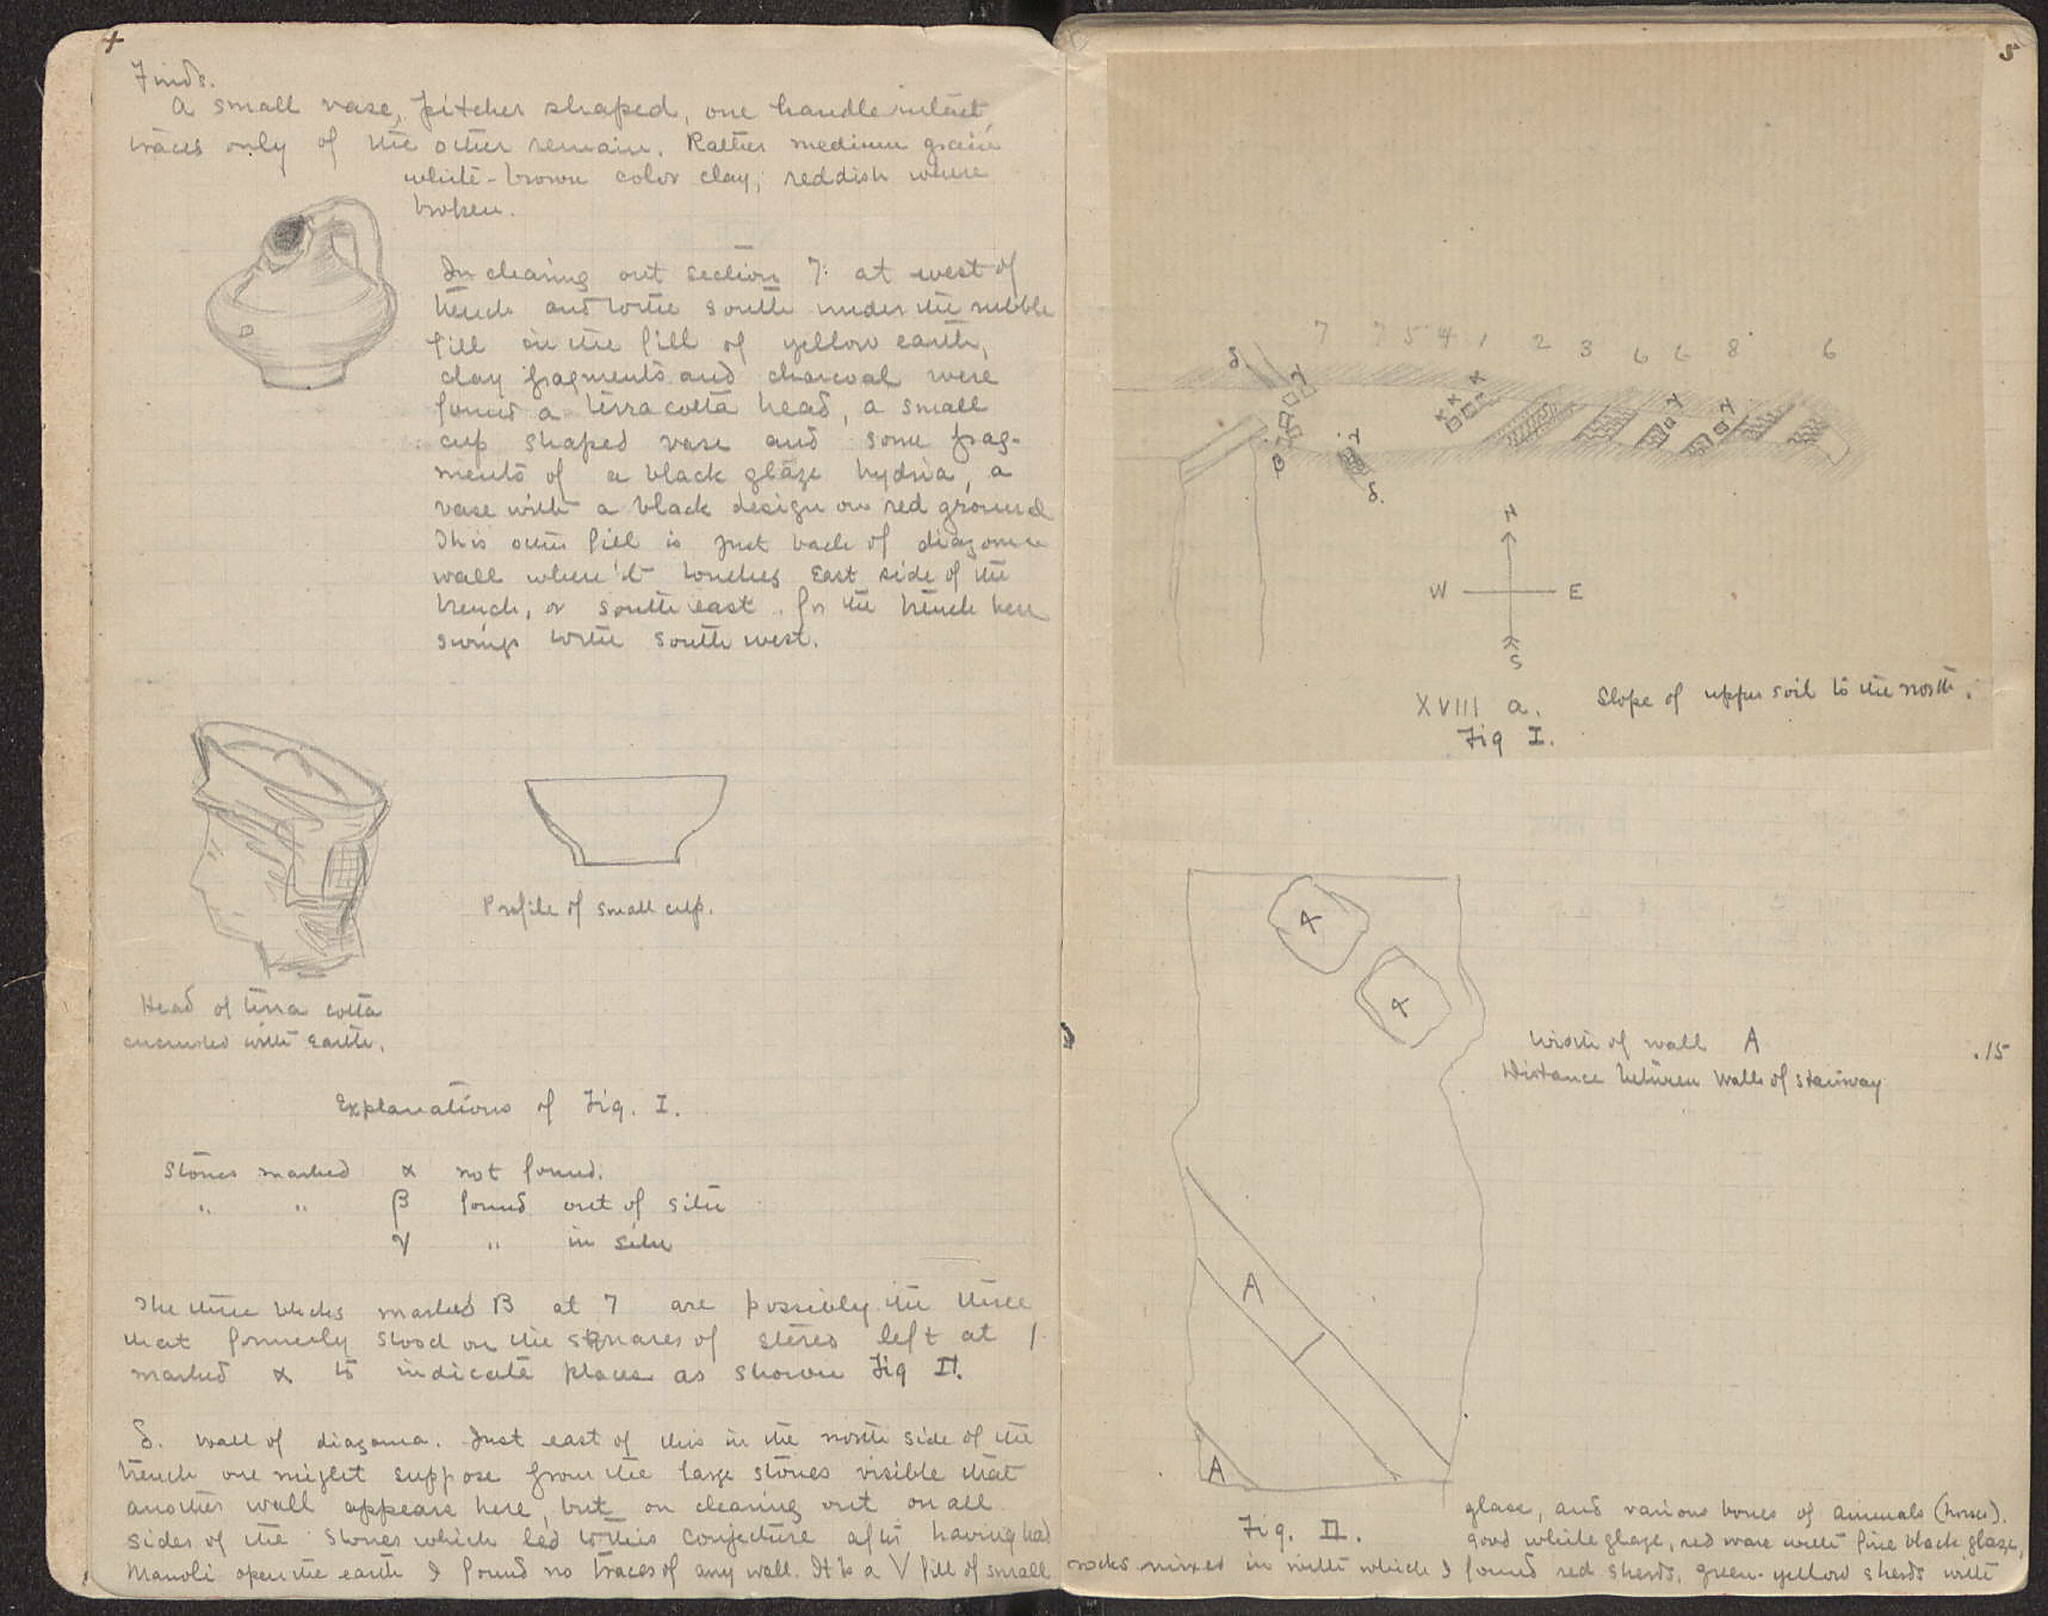 4
Finds.
A small vase, pitcher shaped, one handle intact,
traces only of the other remain. Rather medium grain
white-brown color clay, reddish where
broken.
In clearing out section 7: at west of
trench and to the south under the rubble
fill in the fill of yellow earth,
clay fragments and charcoal were
found a terra cotta head, a small
cup shaped vase and some frag-
ments of a black glaze hydria, a
vase with a black design on red ground
This other fill is just back of diazoma
wall where it touches East side of the
trench, or south east. for the trench here
swings to the south west.
Profile of small cup.
Head of terra cotta
encrusted with Earth.
Explanations of Fig. I.
Stones marked α not found.
" " β found out of situ
γ " in situ
The three blocks marked B at 7 are possibly the three
that formerly stood on the squares of stereo left at 1
marked α to indicate places as shown Fig II.
δ. Wall of diazoma. Just east of this in the north side of the
trench one might suppose from the large stones visible that
another wall appears here, but on clearing out on all
sides of the stones which led to this conjecture after having had
Manoli open the earth I found no traces of any wall. It is a V fill of small
5
7 7 5 4 1 2 3 6 6 8 6
δ. γ
α α α
γ γ
β γ
δ.
N
W E
S
XVIII a. Slope of upper soil to the north.
Fig I.
α
α
Width of wall A .15
Distance between Walls of stairway
A
A
Fig. II.
rocks mixed in with which I found red sherds, green-yellow sherds with
good white glaze, red ware with fine black glaze,
glaze, and various bones of animals (horses).